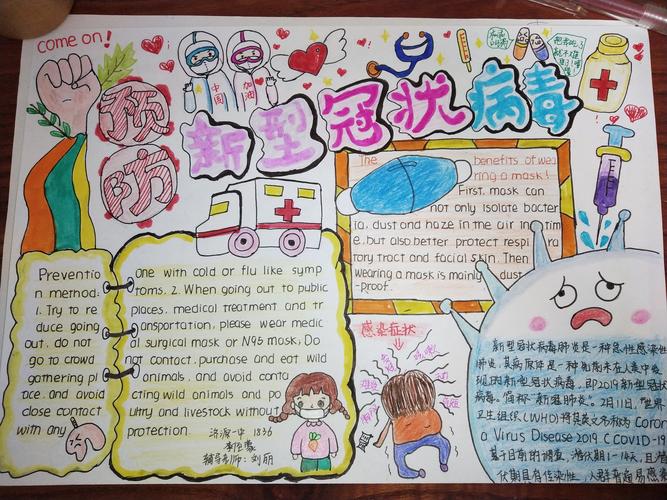 come on!
预防
新型冠状病毒
中国
加油
The benefits of wea
ring a mask!
First, mask can
not only isolate bacter
ia, dust and haze in the air in tim
e, but also better protect respi ra
tory tract and facial skin. Then
wearing a mask is mainly dust
-proof.
Preventio
n method:
1. Try to re
duce going
out, do not
go to crowd
gathering pl
ace, and avoid
close contact
with any
one with cold or flu like symp
toms. 2. When going out to public
places, medical treatment and tr
ansportation, please wear medic
al surgical mask or N95 mask; Do
not contact, purchase and eat wild
animals, and avoid conta
cting wild animals and po
ultry and livestock without
protection.
辅导老师：刘丽
感染症状
新型冠状病毒肺炎是一种急性感染性
肺炎，其病原体是一种
现的新型冠状病毒，即2019新型冠状
病毒。简称“新冠肺炎”。2月11日，“世界
卫生组织（WHO）将其英文名称为Coron
a Virus Disease 2019 (COVID-19
基于目前的调查，潜伏期1-14天，且潜
伏期具有传染性，人群普遍易感染